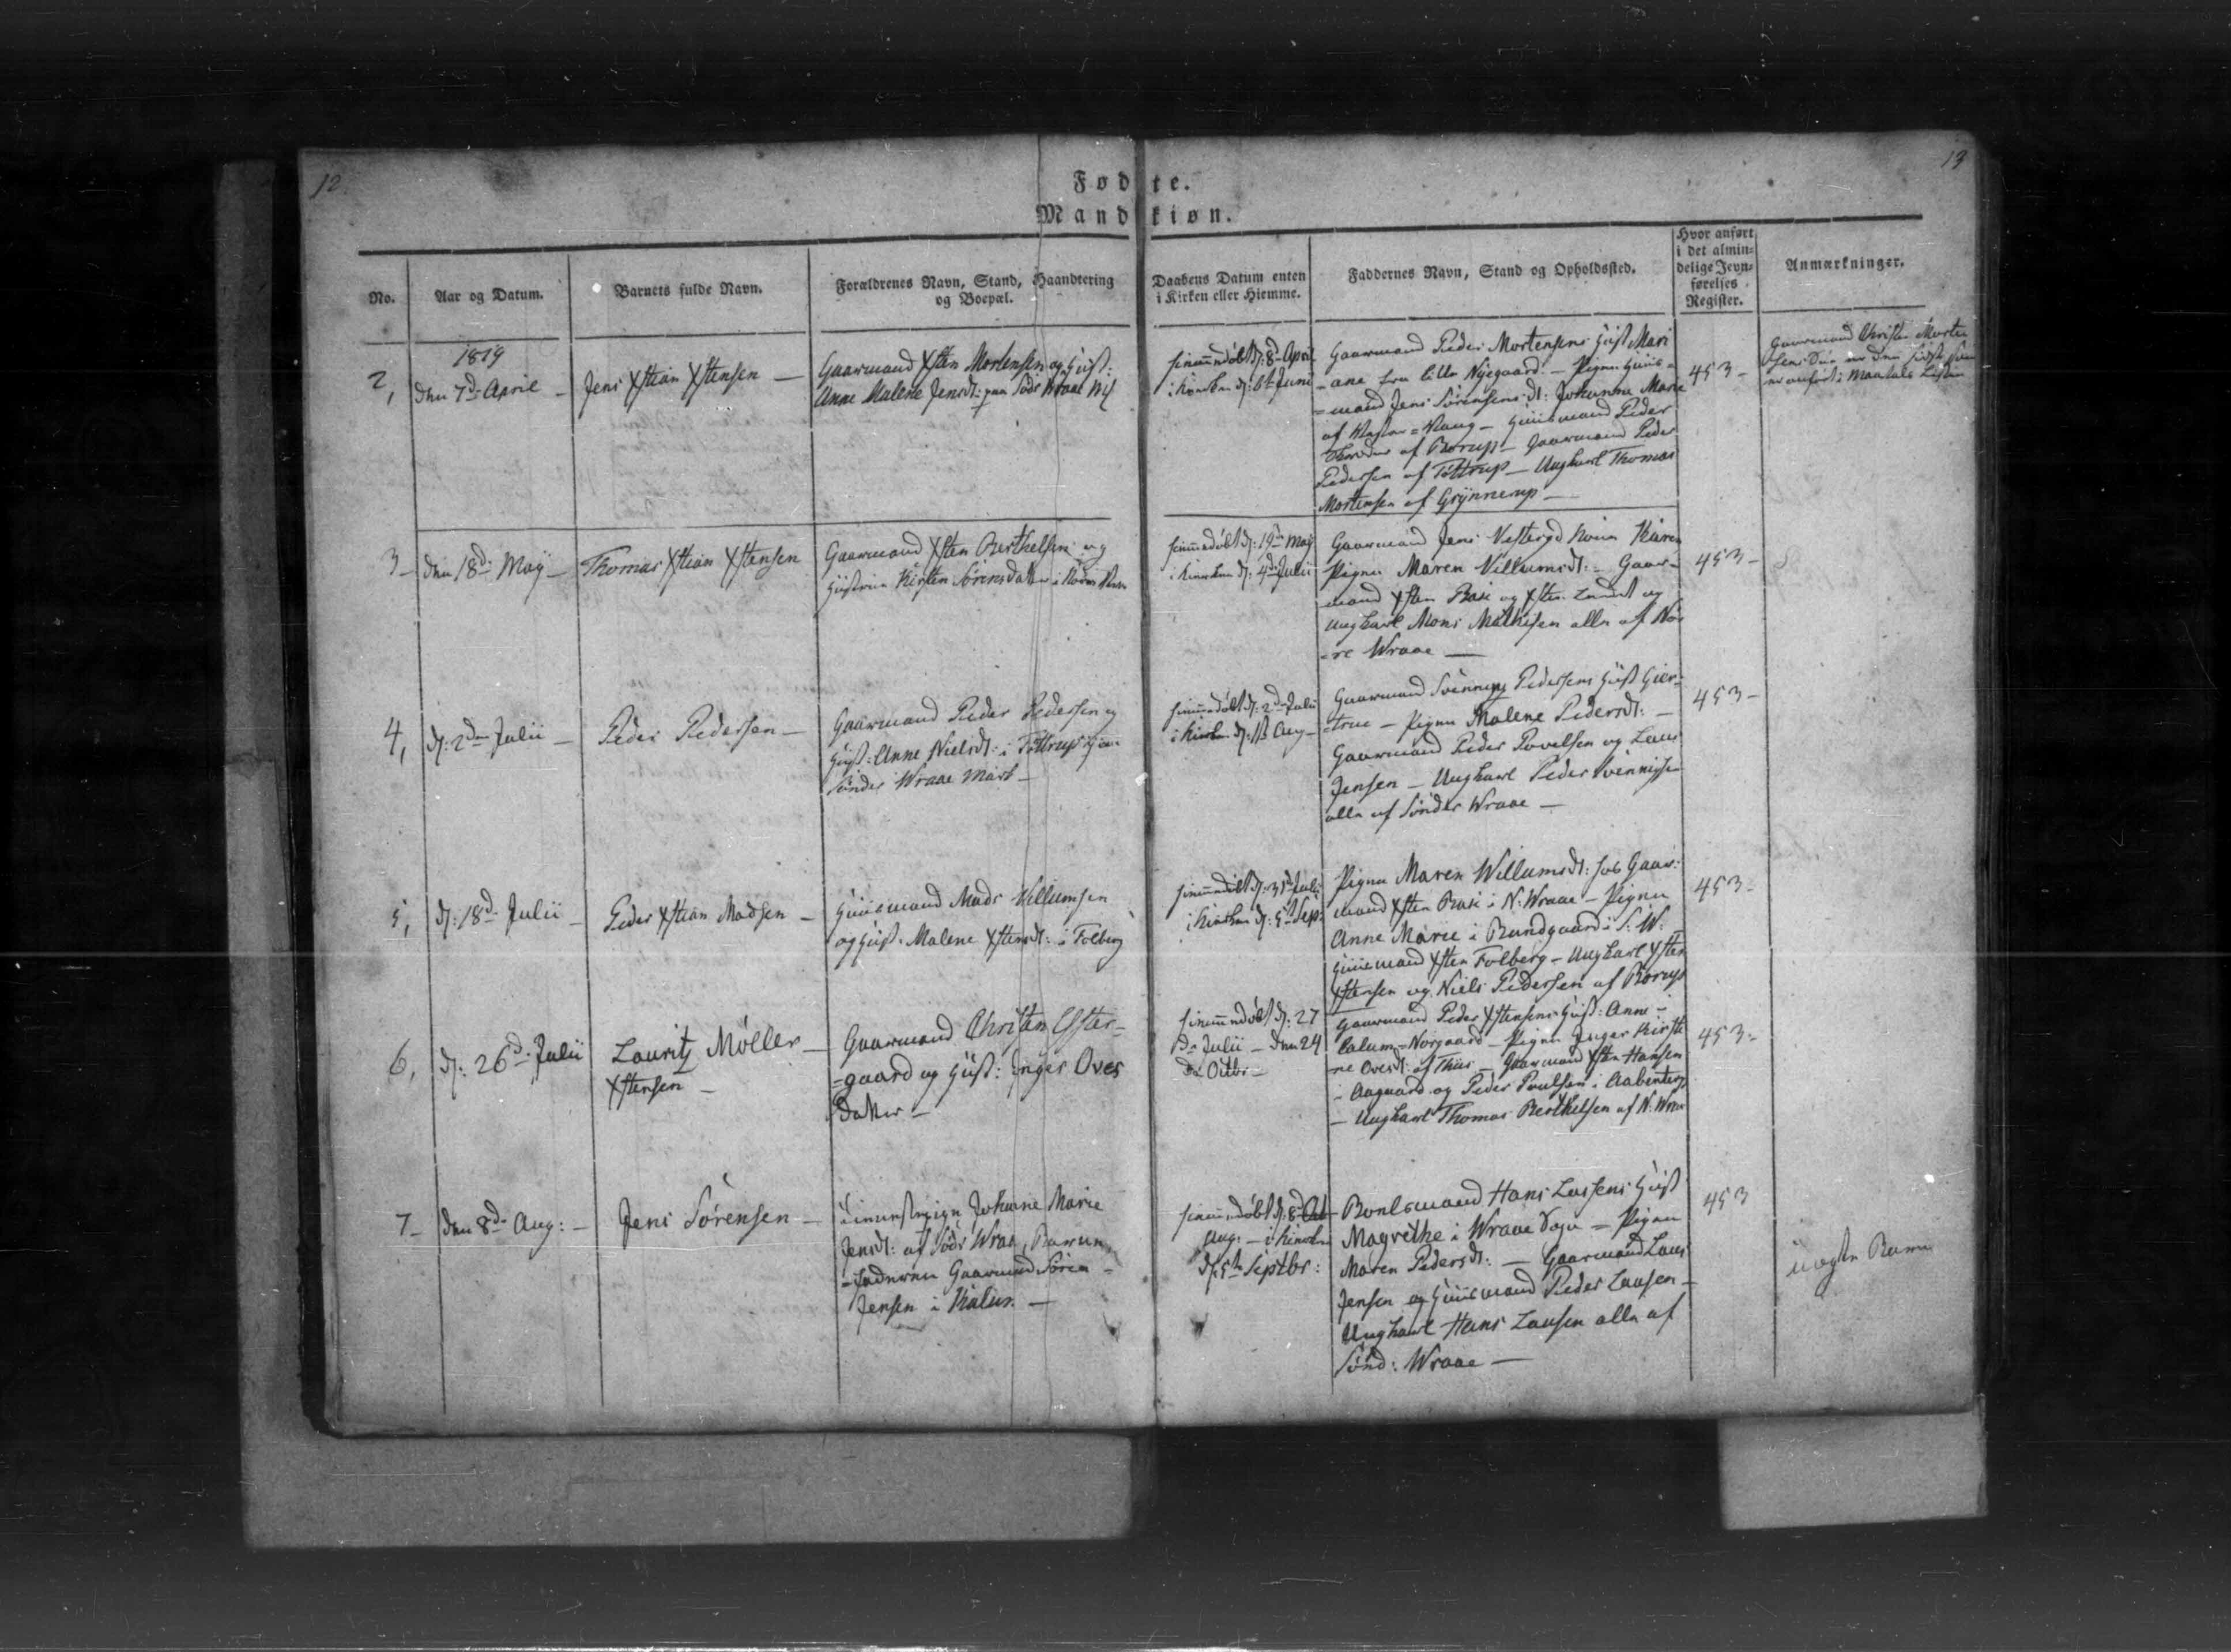 12
13
Fødte.
Mandkiøn.
No.
Aar og Datum.
Barnets fulde Navn.
Forældrenes Navn, Stand, Haandtering
og Boepæl.
Daabens Datum enten
i Kirken eller Hiemme.
Faddernes Navn, Stand og Opholdssted.
Hvor anført
i det almin=
delige Jevn=
førelses
Register.
Anmærkninger.
1819
2,
den 7d: April -
Jens Xstian Xstensen -
Gaarmand Xsten Mortensen og Hust:
Anne Malene Jensdt: paa Sødr Wraae
hiemmedøbt d: 8d April
i Kirken d: Juni
Gaarmand Peder Mortensens Hust Mari
-ane fra lille Nÿegaard - Pigen Huus-
=mand Jens Sörensens dt: Johanne Marie
af - Huusmand Peder
af Borup - Gaarmand Peder
Pedersen af Töttrup - Ungkarl Thomas
Mortensen af Grÿnnerup -
453 -
Gaarmand Christen Morten
sens
er anført i Mantals Listen
3 -
den 18d: Maÿ -
Thomas Xstian Xstensen
Gaarmand Xsten Berthelsen og
Hustrue Kirsten Sörensdatter i Nörre
hiemmedøbt d: 19de Maÿ
i Kirken d: 4de Julii
Gaarmand Jens Vestergd Kone Karen
Pigen Maren Villumsdt: - Gaar-
mand Xsten Basi og Xsten Lundt og
Ungkarl Mons Mathisen alle af Nör
-re Wraae -
453 -
4,
d: 2den Julii -
Peder Pedersen -
Gaarmand Peder Pedersen og
Hust: Anne Nielsdt: i Töttrup
Sönder Wraae Mark -
hiemmedøbt d: 2d Julii
i Kirken d: Aug -
Gaarmand Svenning Pedersens Hust Gier-
true - Pigen Malene Pedersdt: -
Gaarmand Peder Povelsen og Laus
Jensen - Ungkarl Peder Svennigsen
alle af Sönder Wraae -
453 -
5,
d: 18d: Julii -
Peder Xstian Madsen -
Huusmand Mads Villumsen
og Hust: Malene Xstensdt: i Folberg
hiemmedøbt d: 31d Julii
i Kirken d: 5t Sep:
Pigen Maren Willumsdt: hos Gaar-
mand Xsten Basi i N: Wraae - Pigen
Anne Marie i Rundgaard i S: W:
Huusmand Xsten Folberg - Ungkarl Xsten
Xstensen og Niels Pedersen af Borup
453 -
6,
d: 26d: Julii
Lauritz Möller -
Xstensen -
Gaarmand Christen Öster-
=gaard og Hust: Inger Oves
Datter -
hiemmedøbt d: 27
de Julii - den 24
de Octbr -
Gaarmand Peder Xstensens Hust: Anne -
Calum=Norgaard - Pigen Inger Kirsti
ne Ovesdt: af Thiis - Gaarmand Xsten Hansen
i Aagaard og Peder Poulsen i Aabenterp
- Ungkarl Thomas Berthelsen af N: Wraae
453 -
7 -
den 8de Aug: -
Jens Sörensen -
Johanne Marie
Jensdt: af Södr Wraae, Barnen
=faderen Gaarmand Sören -
Jensen i -
hiemmedøbt d: 8d
Aug: - i Kirken
d: 5te Septbr:
Boelsmand Hans Lassens Hust
Magrethe i Wraae - Pigen
Maren Pedersdt: - Gaarmand Laus
Jensen og Huusmand Peder Lausen -
Ungkarl Hans Lausen alle af
Sönd: Wraae -
453
uægte Barn